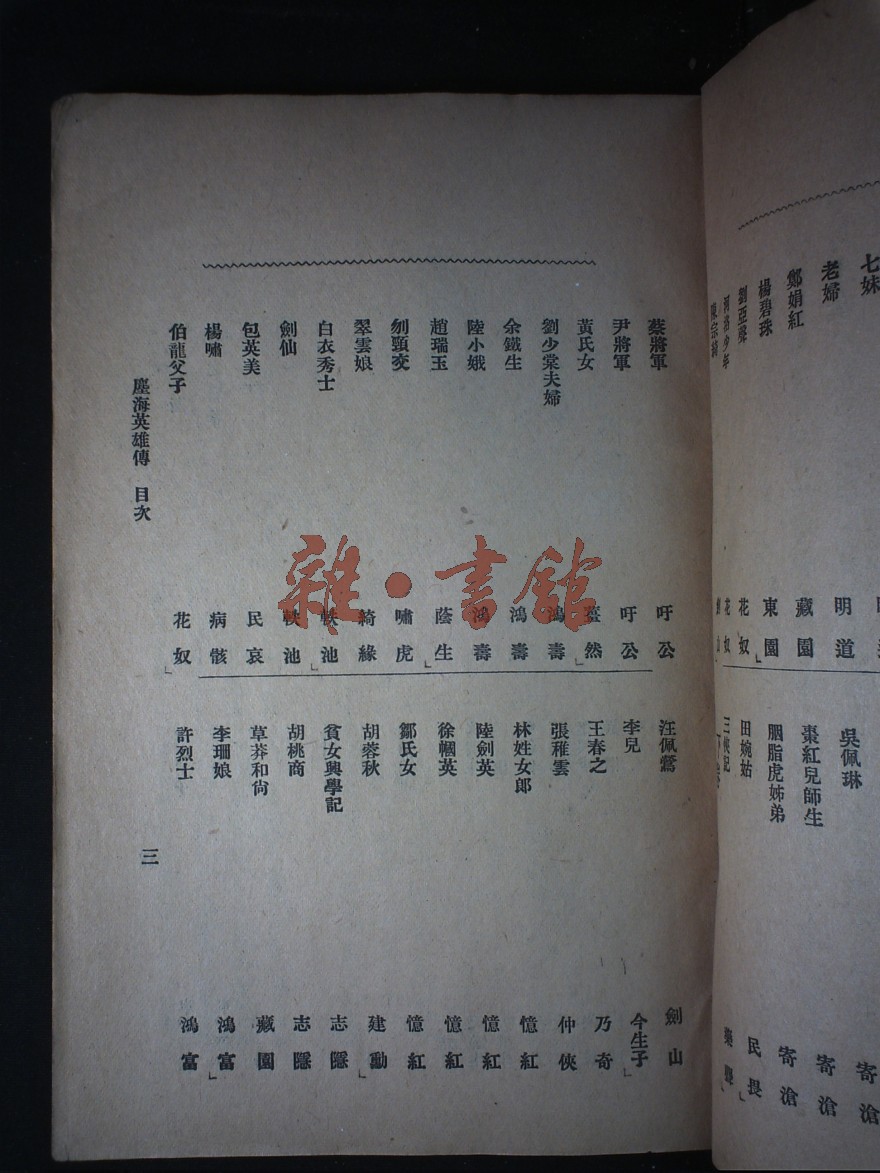 七妹
老婦
鄭娟紅
楊碧珠
劉亞舜
河洛少年
陳宗錡
明道
藏園
東園
花奴
花奴
吳佩琳
棗紅兒師生
胭脂虎姊弟
田婉姑
三俠記
寄滄
寄滄
寄滄
民畏
蔡將軍 吁公
尹將軍 吁公
黃氏女 藎然
劉少棠夫婦 鴻壽
余鐵生 鴻壽
陸小娥 鴻壽
趙瑞玉 蔭生
刎頸交 嘯虎
翠雲娘 綺緣
白衣秀士 軼池
劍仙 軼池
包英美 民哀
楊嘯 病骸
伯龍父子 花奴
汪佩鶯 劍山
李兒 今生子
王春之 乃奇
張稚雲 仲俠
林姓女郎 憶紅
陸劍英 憶紅
徐幗英 憶紅
鄒氏女 憶紅
胡蓉秋 建勳
貧女興學記 志隱
胡桃商 志隱
草莽和尙 藏園
李珊娘 鴻富
許烈士 鴻富
塵海英雄傳 目次
三
雜·書館